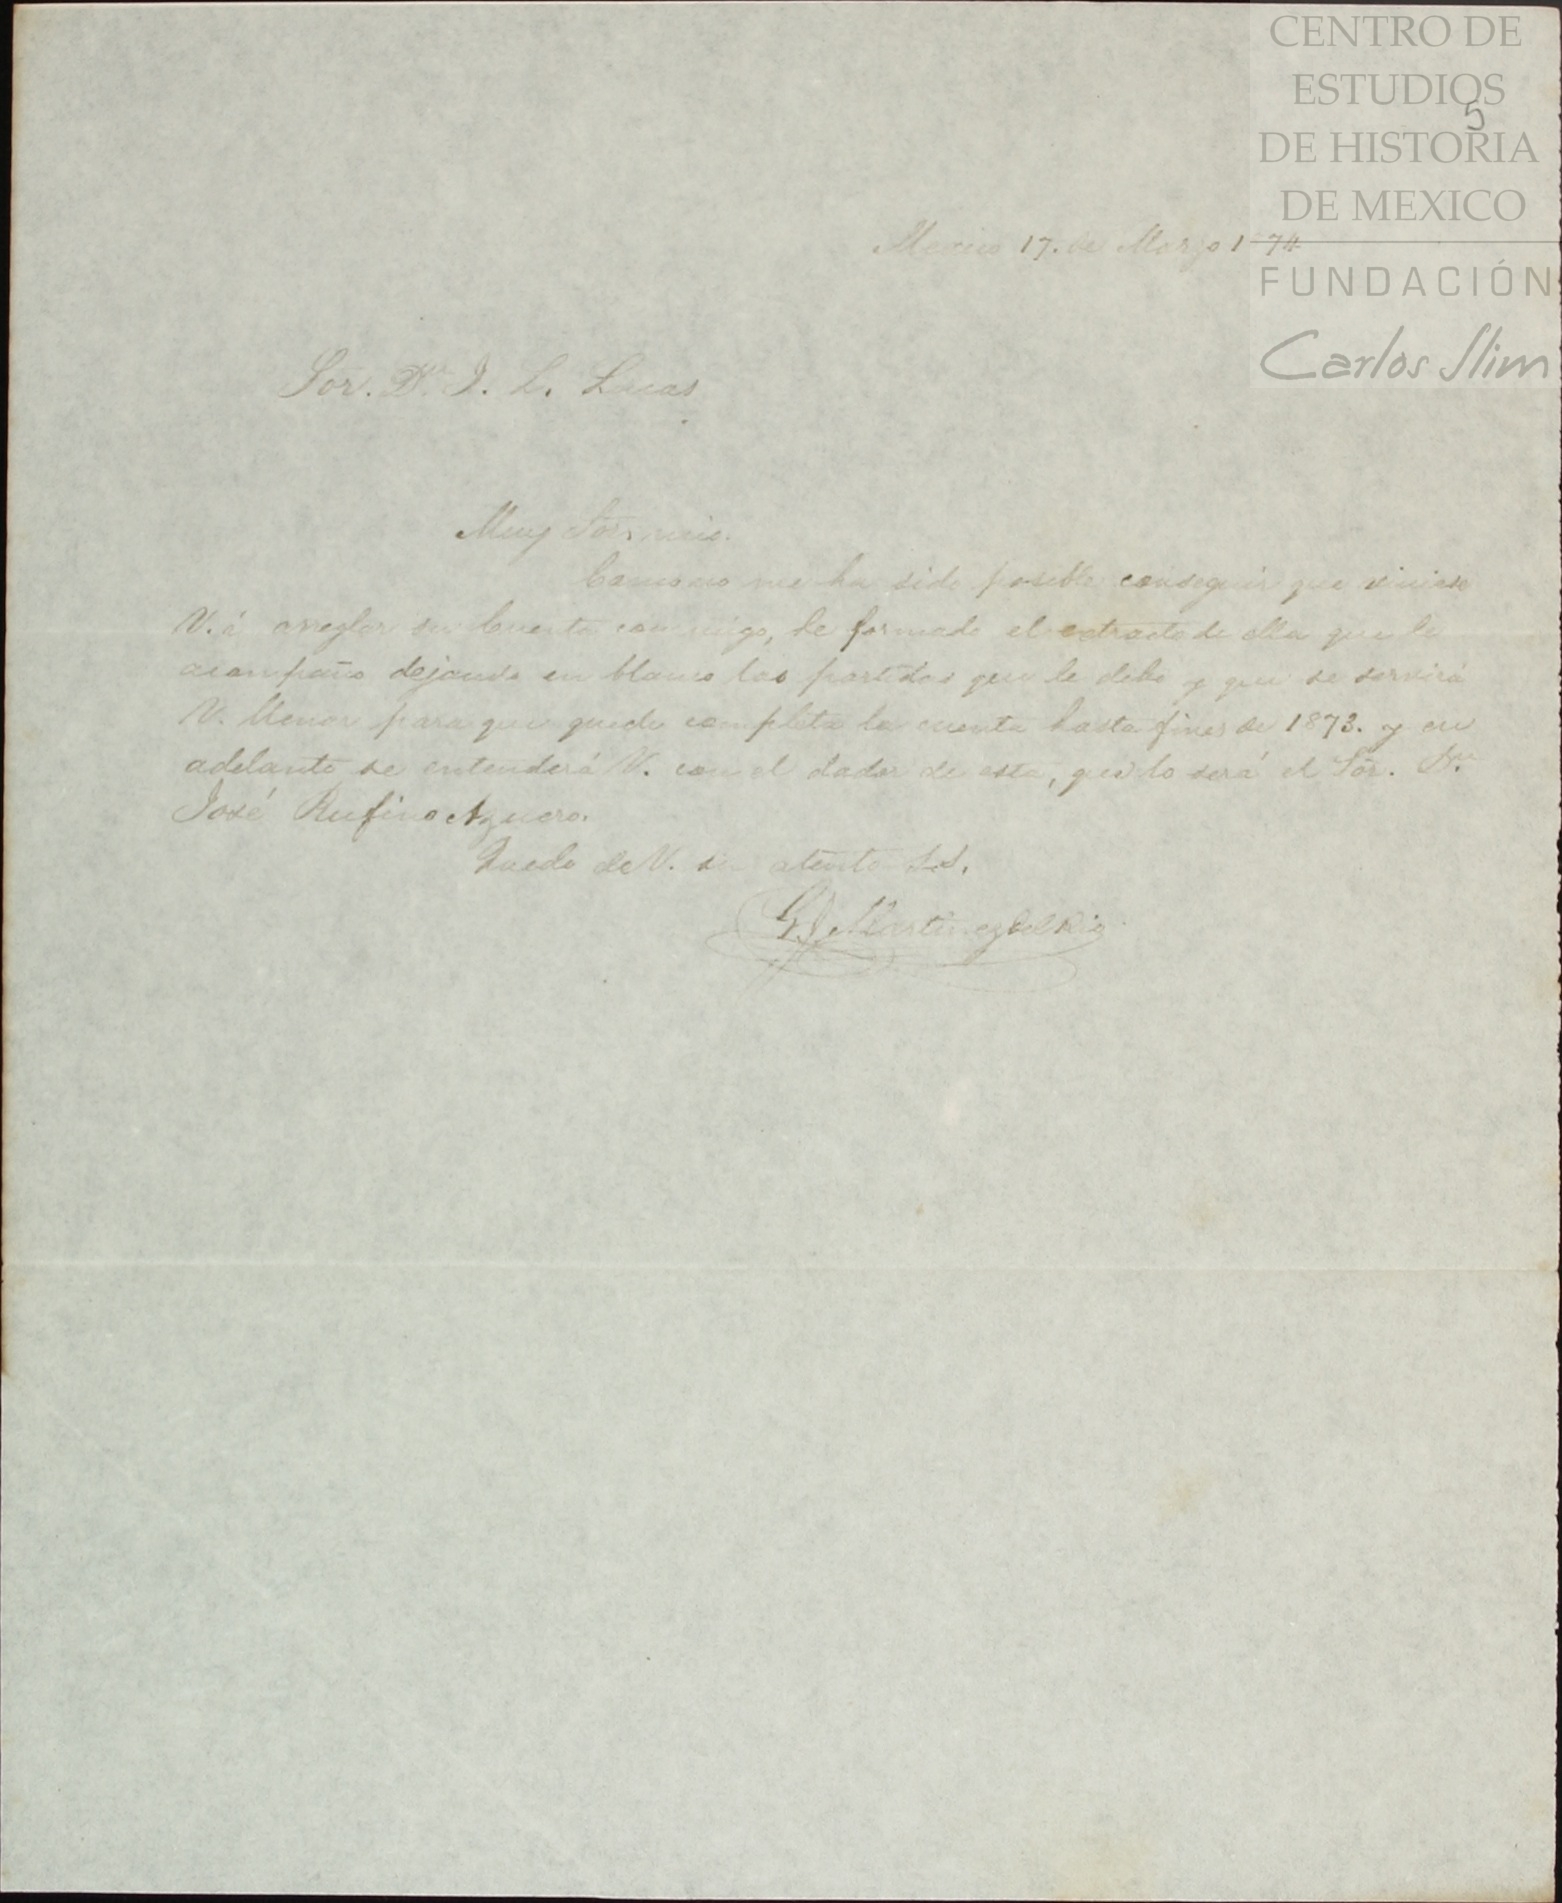 CENTRO DE
ESTUDIOS
5
DE HISTORIA
DE MEXICO
FUNDACIÓN
Carlos Slim
Mexico 17. de Marzo 1874
Sor. Dn. J. L. Lucas
Muy Sor. mio.
Como no me ha sido posible conseguir que viniese
V. á arreglar su Cuenta conmigo, he formado el extracto de ella que le
acompaño dejando en blanco las partidas que le debo y que se servirá
V. llenar para que quede completa la cuenta hasta fines de 1873. y en
adelante se entenderá V. con el dador de esta, que lo será el Sor. Dn.
José Rufino Azuero.
Quedo de V. su atento S.S.
G. J. Martinez del Rio